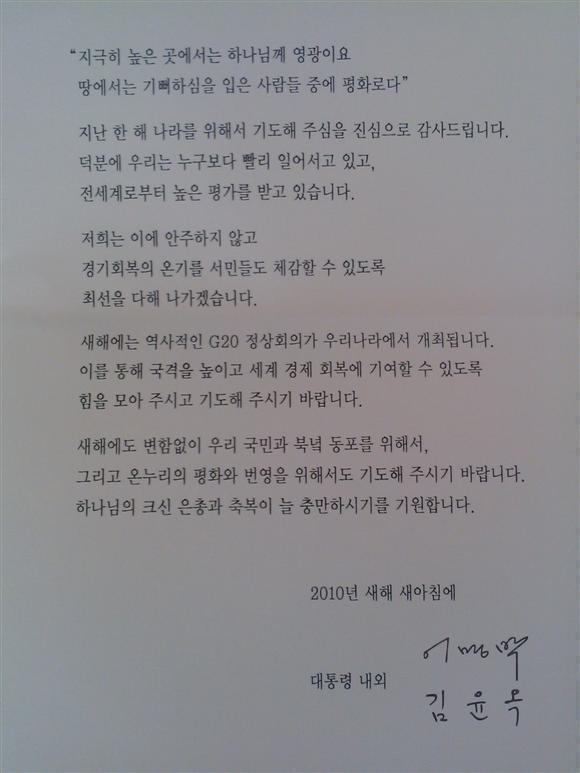 “지극히 높은 곳에서는 하나님께 영광이요
땅에서는 기뻐하심을 입은 사람들 중에 평화로다”
지난 한 해 나라를 위해서 기도해 주심을 진심으로 감사드립니다.
덕분에 우리는 누구보다 빨리 일어서고 있고,
전세계로부터 높은 평가를 받고 있습니다.
저희는 이에 안주하지 않고
경기회복의 온기를 서민들도 체감할 수 있도록
최선을 다해 나가겠습니다.
새해에는 역사적인 G20 정상회의가 우리나라에서 개최됩니다.
이를 통해 국격을 높이고 세계 경제 회복에 기여할 수 있도록
힘을 모아 주시고 기도해 주시기 바랍니다.
새해에도 변함없이 우리 국민과 북녘 동포를 위해서,
그리고 온누리의 평화와 번영을 위해서도 기도해 주시기 바랍니다.
하나님의 크신 은총과 축복이 늘 충만하시기를 기원합니다.
2010년 새해 새아침에
이명박
대통령 내외
김윤옥